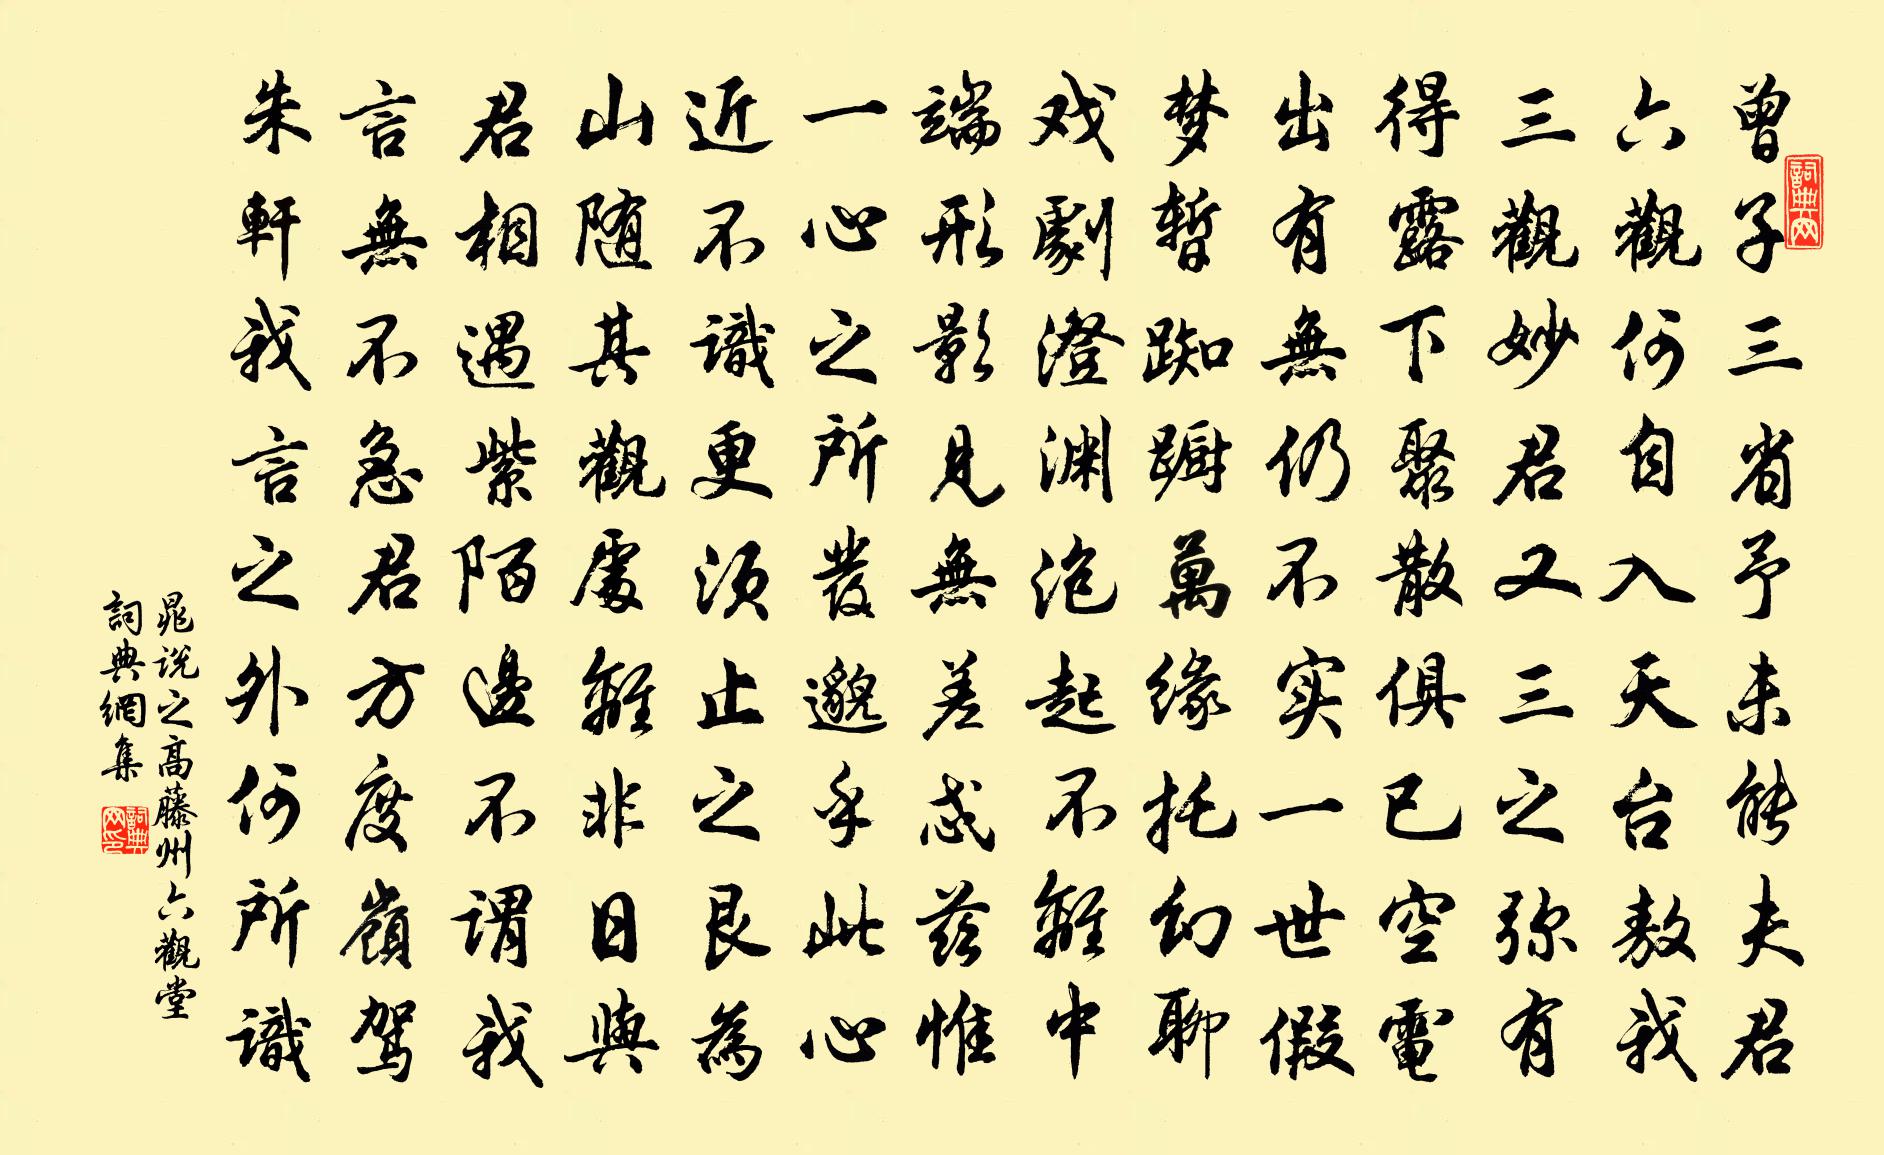 曾子三省予未能夫君
六觀何自入天台敖我
三觀妙君又三之弥有
得露下聚散俱已空電
出有無仍不实一世假
梦暫踟蹰萬缘托幻聊
戏劇澄渊泡起不離中
端形影見無差忒茲惟
一心之所發邈乎此心
近不識更须止之艮為
山随其觀處離非日與
君相遇紫陌邊不谓我
言無不急君方度嶺駕
朱軒我言之外何所識
晁说之高藤州六觀堂
詞典網集
詞典网
詞典网印